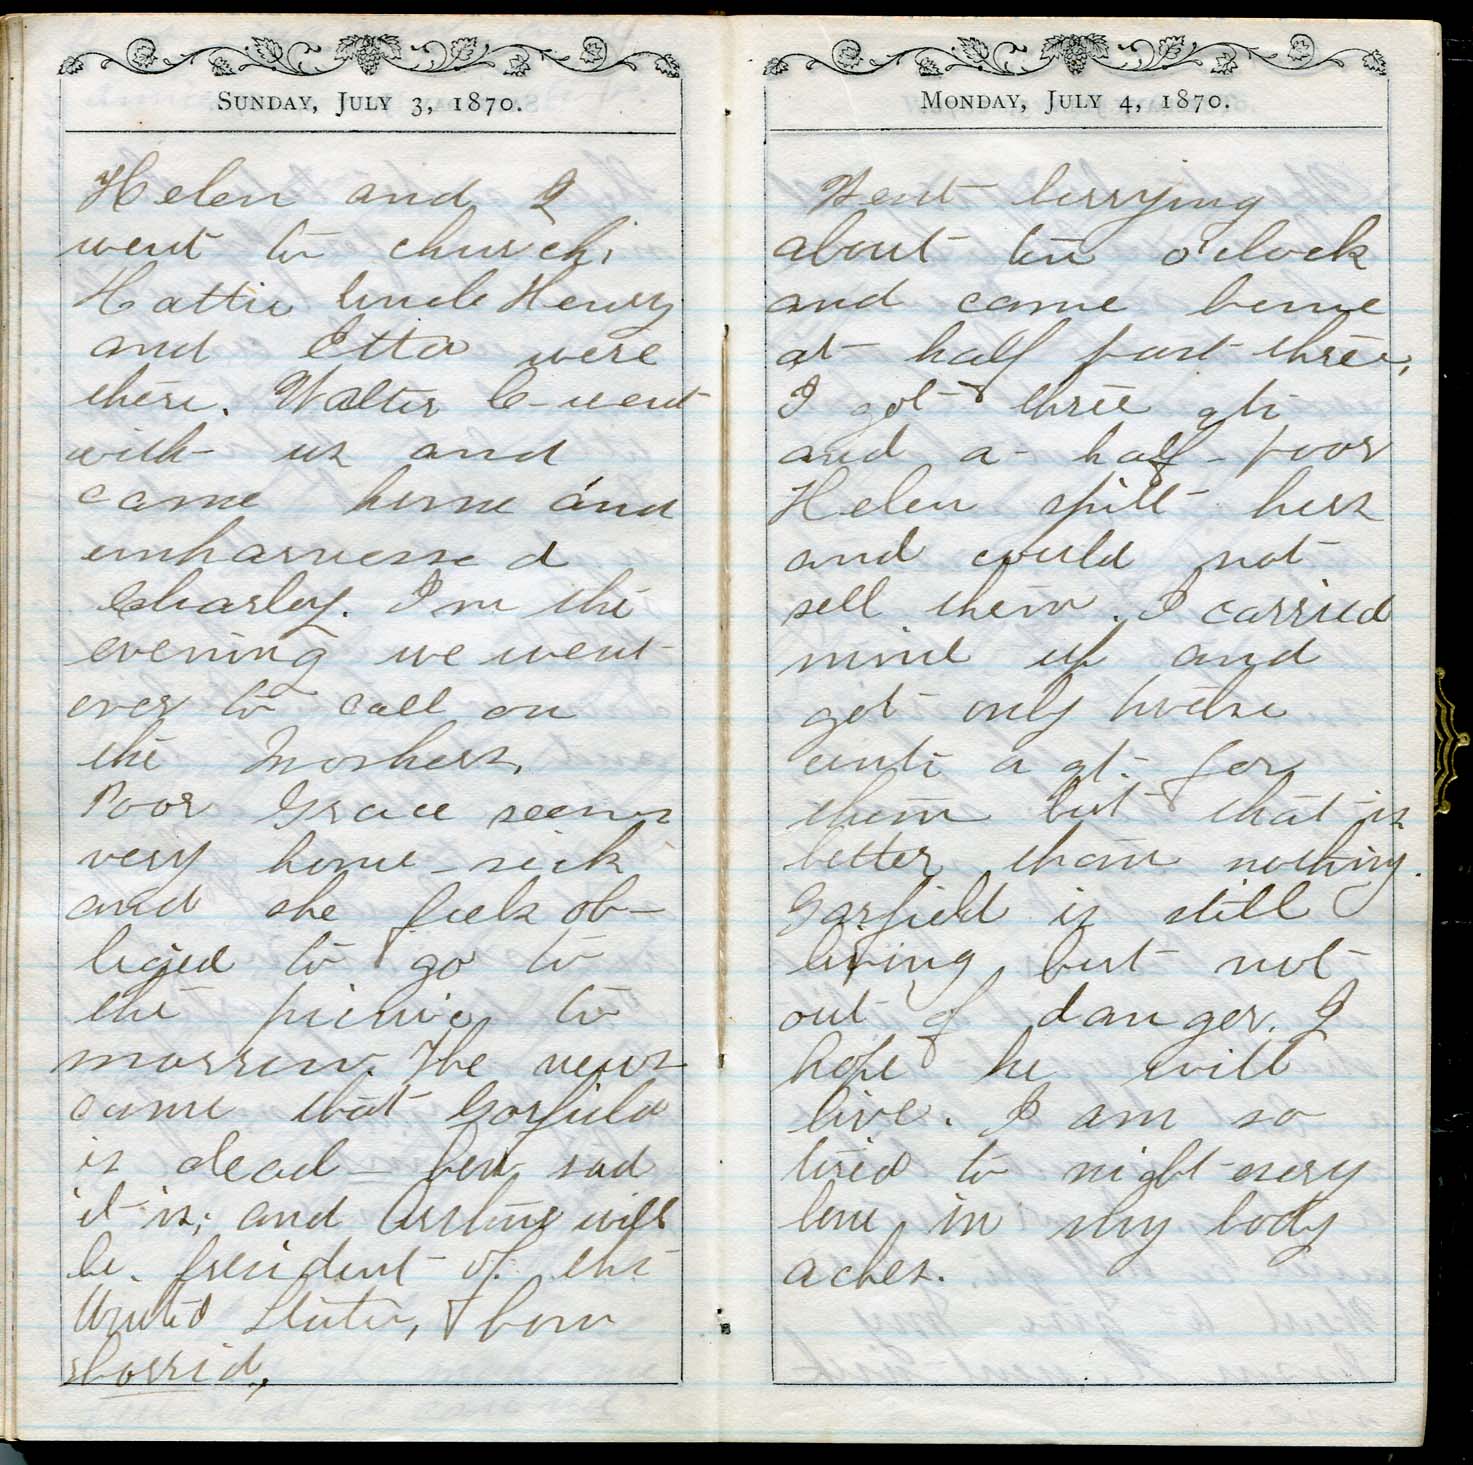 SUNDAY, JULY 3, 1870.
Helen and I
went to church;
Hattie Uncle Henry
and Etta were
there. Walter C– went
with us and
came home and
unharnessed
Charley. In the
evening we went
over to call on
the Moshers.
Poor Grace seems
very home-sick
and she feels ob-
liged to go to
the picnic to
morrow. The news
came that Garfield
is dead – how sad
it is; and Arthur will
be president of the
United States, how
horrid,
MONDAY, JULY 4, 1870.
Went berrying
about ten o'clock
and came home
at half past three,
I got three qts
and a half – poor
Helen spilt hers
and could not
sell them. I carried
mine up and
got only twelve
cents a qt. for
them but that is
better than nothing.
Garfield is still
living but not
out of danger. I
hope he will
live. I am so
tired to night every
bone in my body
aches.